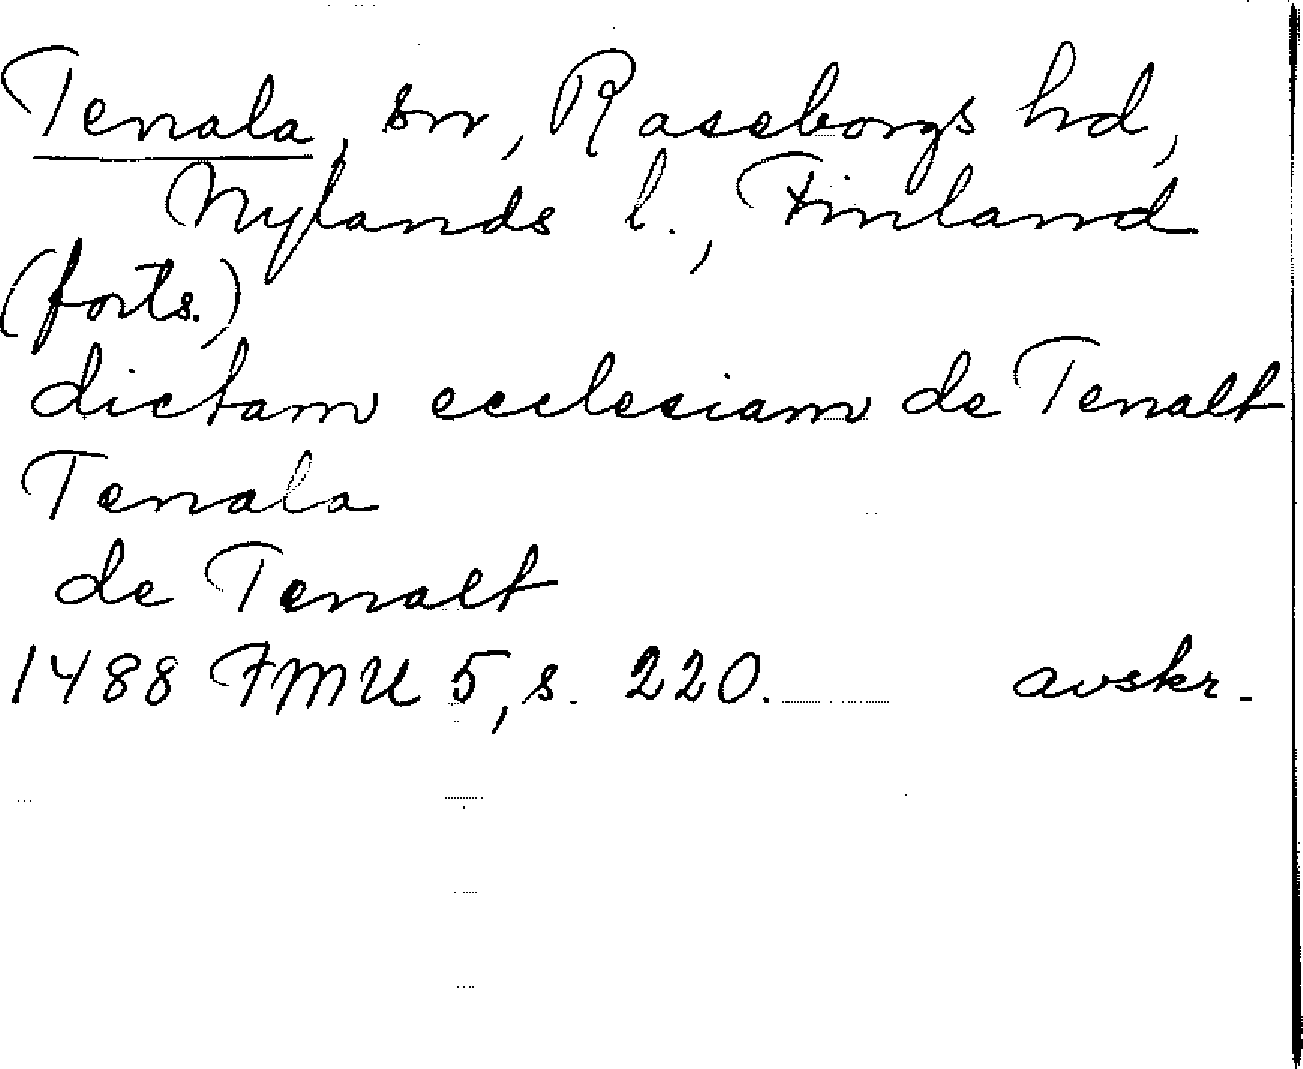 Tenala, sn, Raseborgs hd,
Nylands l., Finland
(forts.)
dictam ecclesiam de Tenalt
Tenala
de Tenalt
1488 FMU 5, s. 220. avskr.